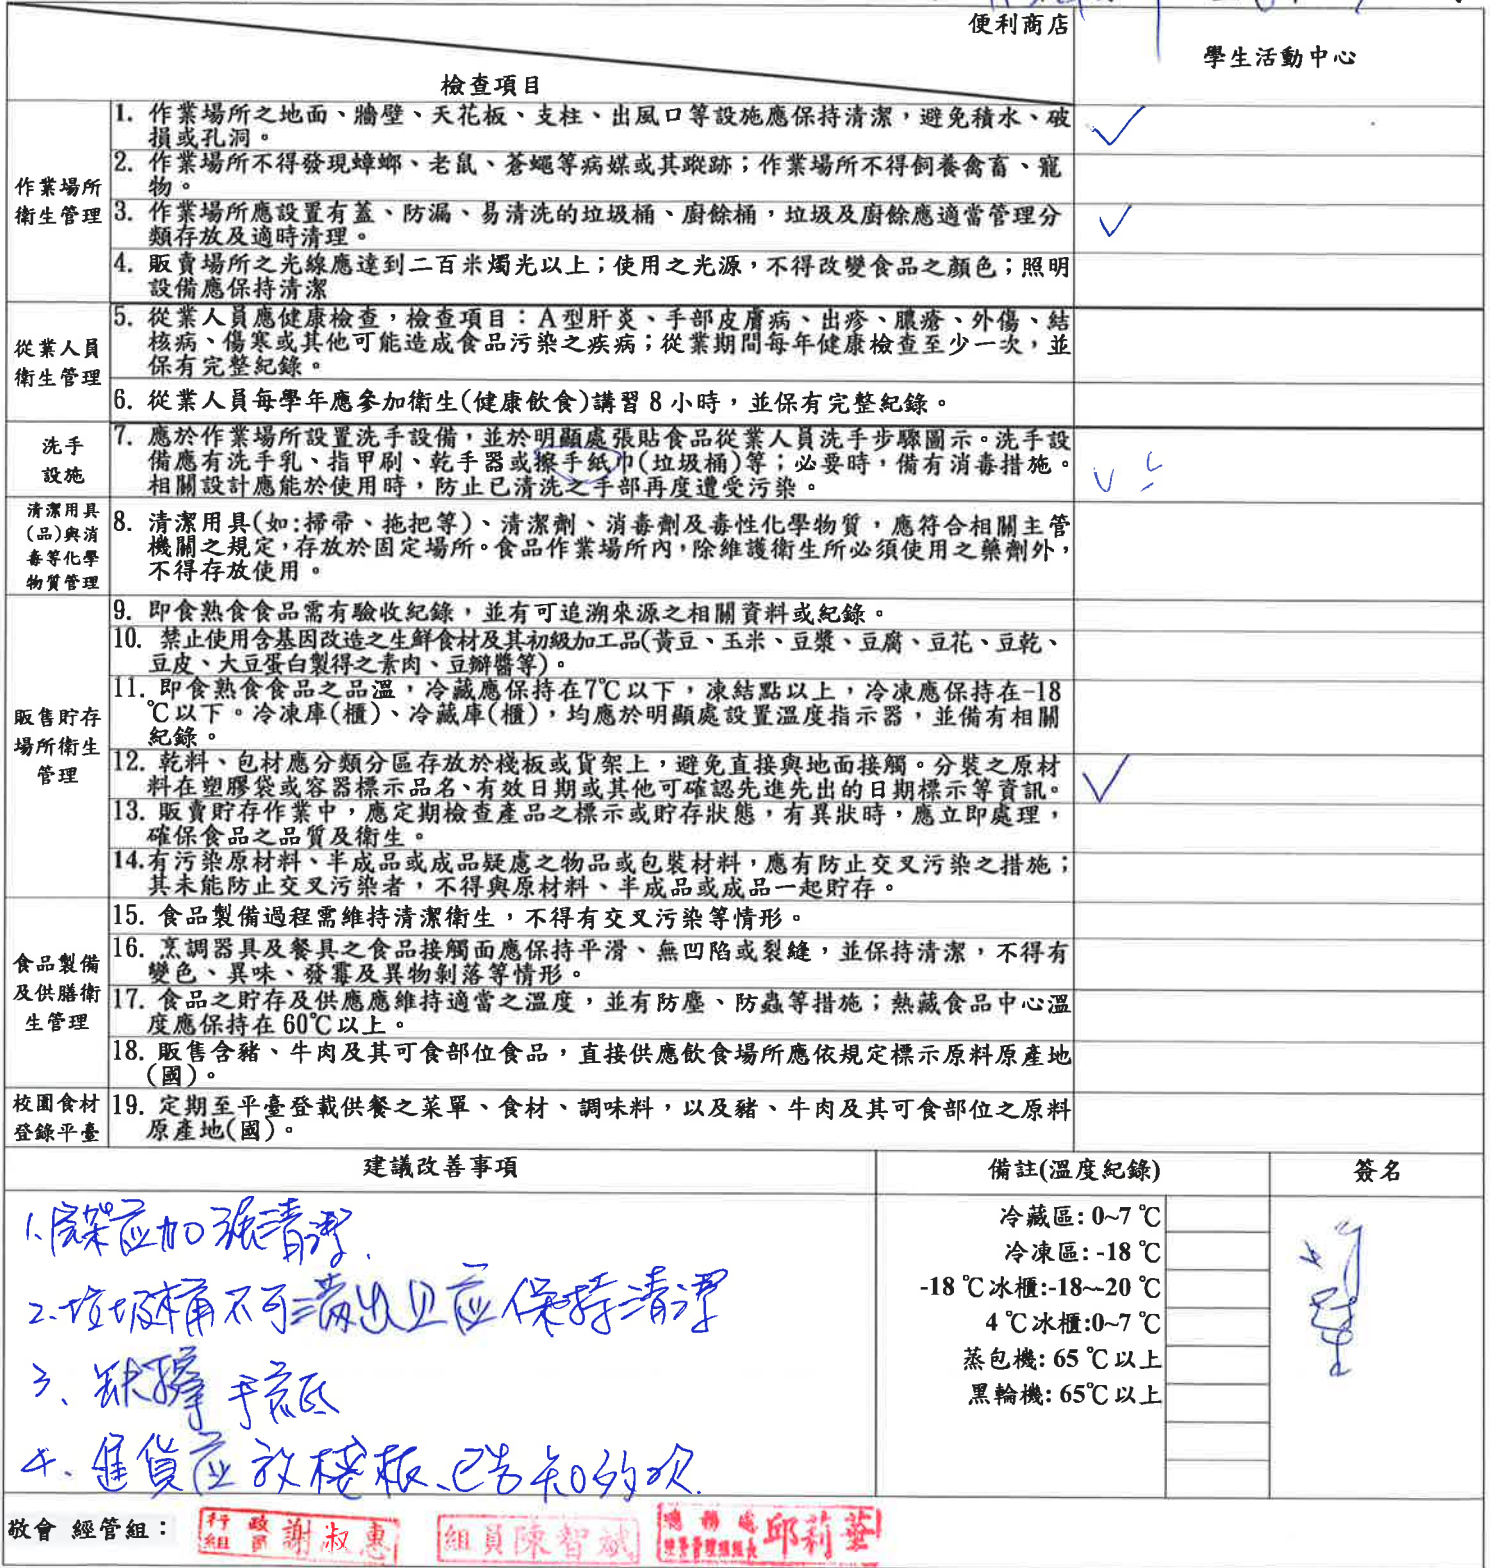 便利商店
學生活動中心
檢查項目
作業場所
衛生管理
1. 作業場所之地面、牆壁、天花板、支柱、出風口等設施應保持清潔，避免積水、破
損或孔洞。
2. 作業場所不得發現蟑螂、老鼠、蒼蠅等病媒或其蹤跡；作業場所不得飼養禽畜、寵
物。
3. 作業場所應設置有蓋、防漏、易清洗的垃圾桶、廚餘桶，垃圾及廚餘應適當管理分
類存放及適時清理。
4. 販賣場所之光線應達到二百米燭光以上；使用之光源，不得改變食品之顏色；照明
設備應保持清潔
從業人員
衛生管理
5. 從業人員應健康檢查，檢查項目：A型肝炎、手部皮膚病、出疹、膿瘡、外傷、結
核病、傷寒或其他可能造成食品污染之疾病；從業期間每年健康檢查至少一次，並
保有完整紀錄。
6. 從業人員每學年應參加衛生(健康飲食)講習 8 小時，並保有完整紀錄。
洗手
設施
7. 應於作業場所設置洗手設備，並於明顯處張貼食品從業人員洗手步驟圖示。洗手設
備應有洗手乳、指甲刷、乾手器或擦手紙巾(垃圾桶)等；必要時，備有消毒措施。
相關設計應能於使用時，防止已清洗之手部再度遭受污染。
清潔用具
(品)與消
毒等化學
物質管理
8. 清潔用具(如:掃帚、拖把等)、清潔劑、消毒劑及毒性化學物質，應符合相關主管
機關之規定，存放於固定場所。食品作業場所內，除維護衛生所必須使用之藥劑外，
不得存放使用。
販售貯存
場所衛生
管理
9. 即食熟食食品需有驗收紀錄，並有可追溯來源之相關資料或紀錄。
10. 禁止使用含基因改造之生鮮食材及其初級加工品(黃豆、玉米、豆漿、豆腐、豆花、豆乾、
豆皮、大豆蛋白製得之素肉、豆瓣醬等)。
11. 即食熟食食品之品溫，冷藏應保持在7℃以下，凍結點以上，冷凍應保持在-18
℃以下。冷凍庫(櫃)、冷藏庫(櫃)，均應於明顯處設置溫度指示器，並備有相關
紀錄。
12. 乾料、包材應分類分區存放於棧板或貨架上，避免直接與地面接觸。分裝之原材
料在塑膠袋或容器標示品名、有效日期或其他可確認先進先出的日期標示等資訊。
13. 販賣貯存作業中，應定期檢查產品之標示或貯存狀態，有異狀時，應立即處理，
確保食品之品質及衛生。
14.有污染原材料、半成品或成品疑慮之物品或包裝材料，應有防止交叉污染之措施；
其未能防止交叉污染者，不得與原材料、半成品或成品一起貯存。
食品製備
及供膳衛
生管理
15. 食品製備過程需維持清潔衛生，不得有交叉污染等情形。
16. 烹調器具及餐具之食品接觸面應保持平滑、無凹陷或裂縫，並保持清潔，不得有
變色、異味、發霉及異物剝落等情形。
17. 食品之貯存及供應應維持適當之溫度，並有防塵、防蟲等措施；熱藏食品中心溫
度應保持在 60℃以上。
18. 販售含豬、牛肉及其可食部位食品，直接供應飲食場所應依規定標示原料原產地
(國)。
校園食材
登錄平臺
19. 定期至平臺登載供餐之菜單、食材、調味料，以及豬、牛肉及其可食部位之原料
原產地(國)。
建議改善事項
備註(溫度紀錄)
簽名
1. 层架应加強清潔.
2. 垃圾桶不可滿出且应保持清潔
3、缺擦手紙
4、進貨应放棧板、已告知
冷藏區: 0~7 ℃
冷凍區: -18 ℃
-18 ℃冰櫃:-18~-20 ℃
4 ℃冰櫃:0~7 ℃
蒸包機: 65 ℃以上
黑輪機: 65℃以上
敬會 經管組：
行政組員 謝淑惠
組員陳智斌
總務處 經營管理組組長 邱莉華